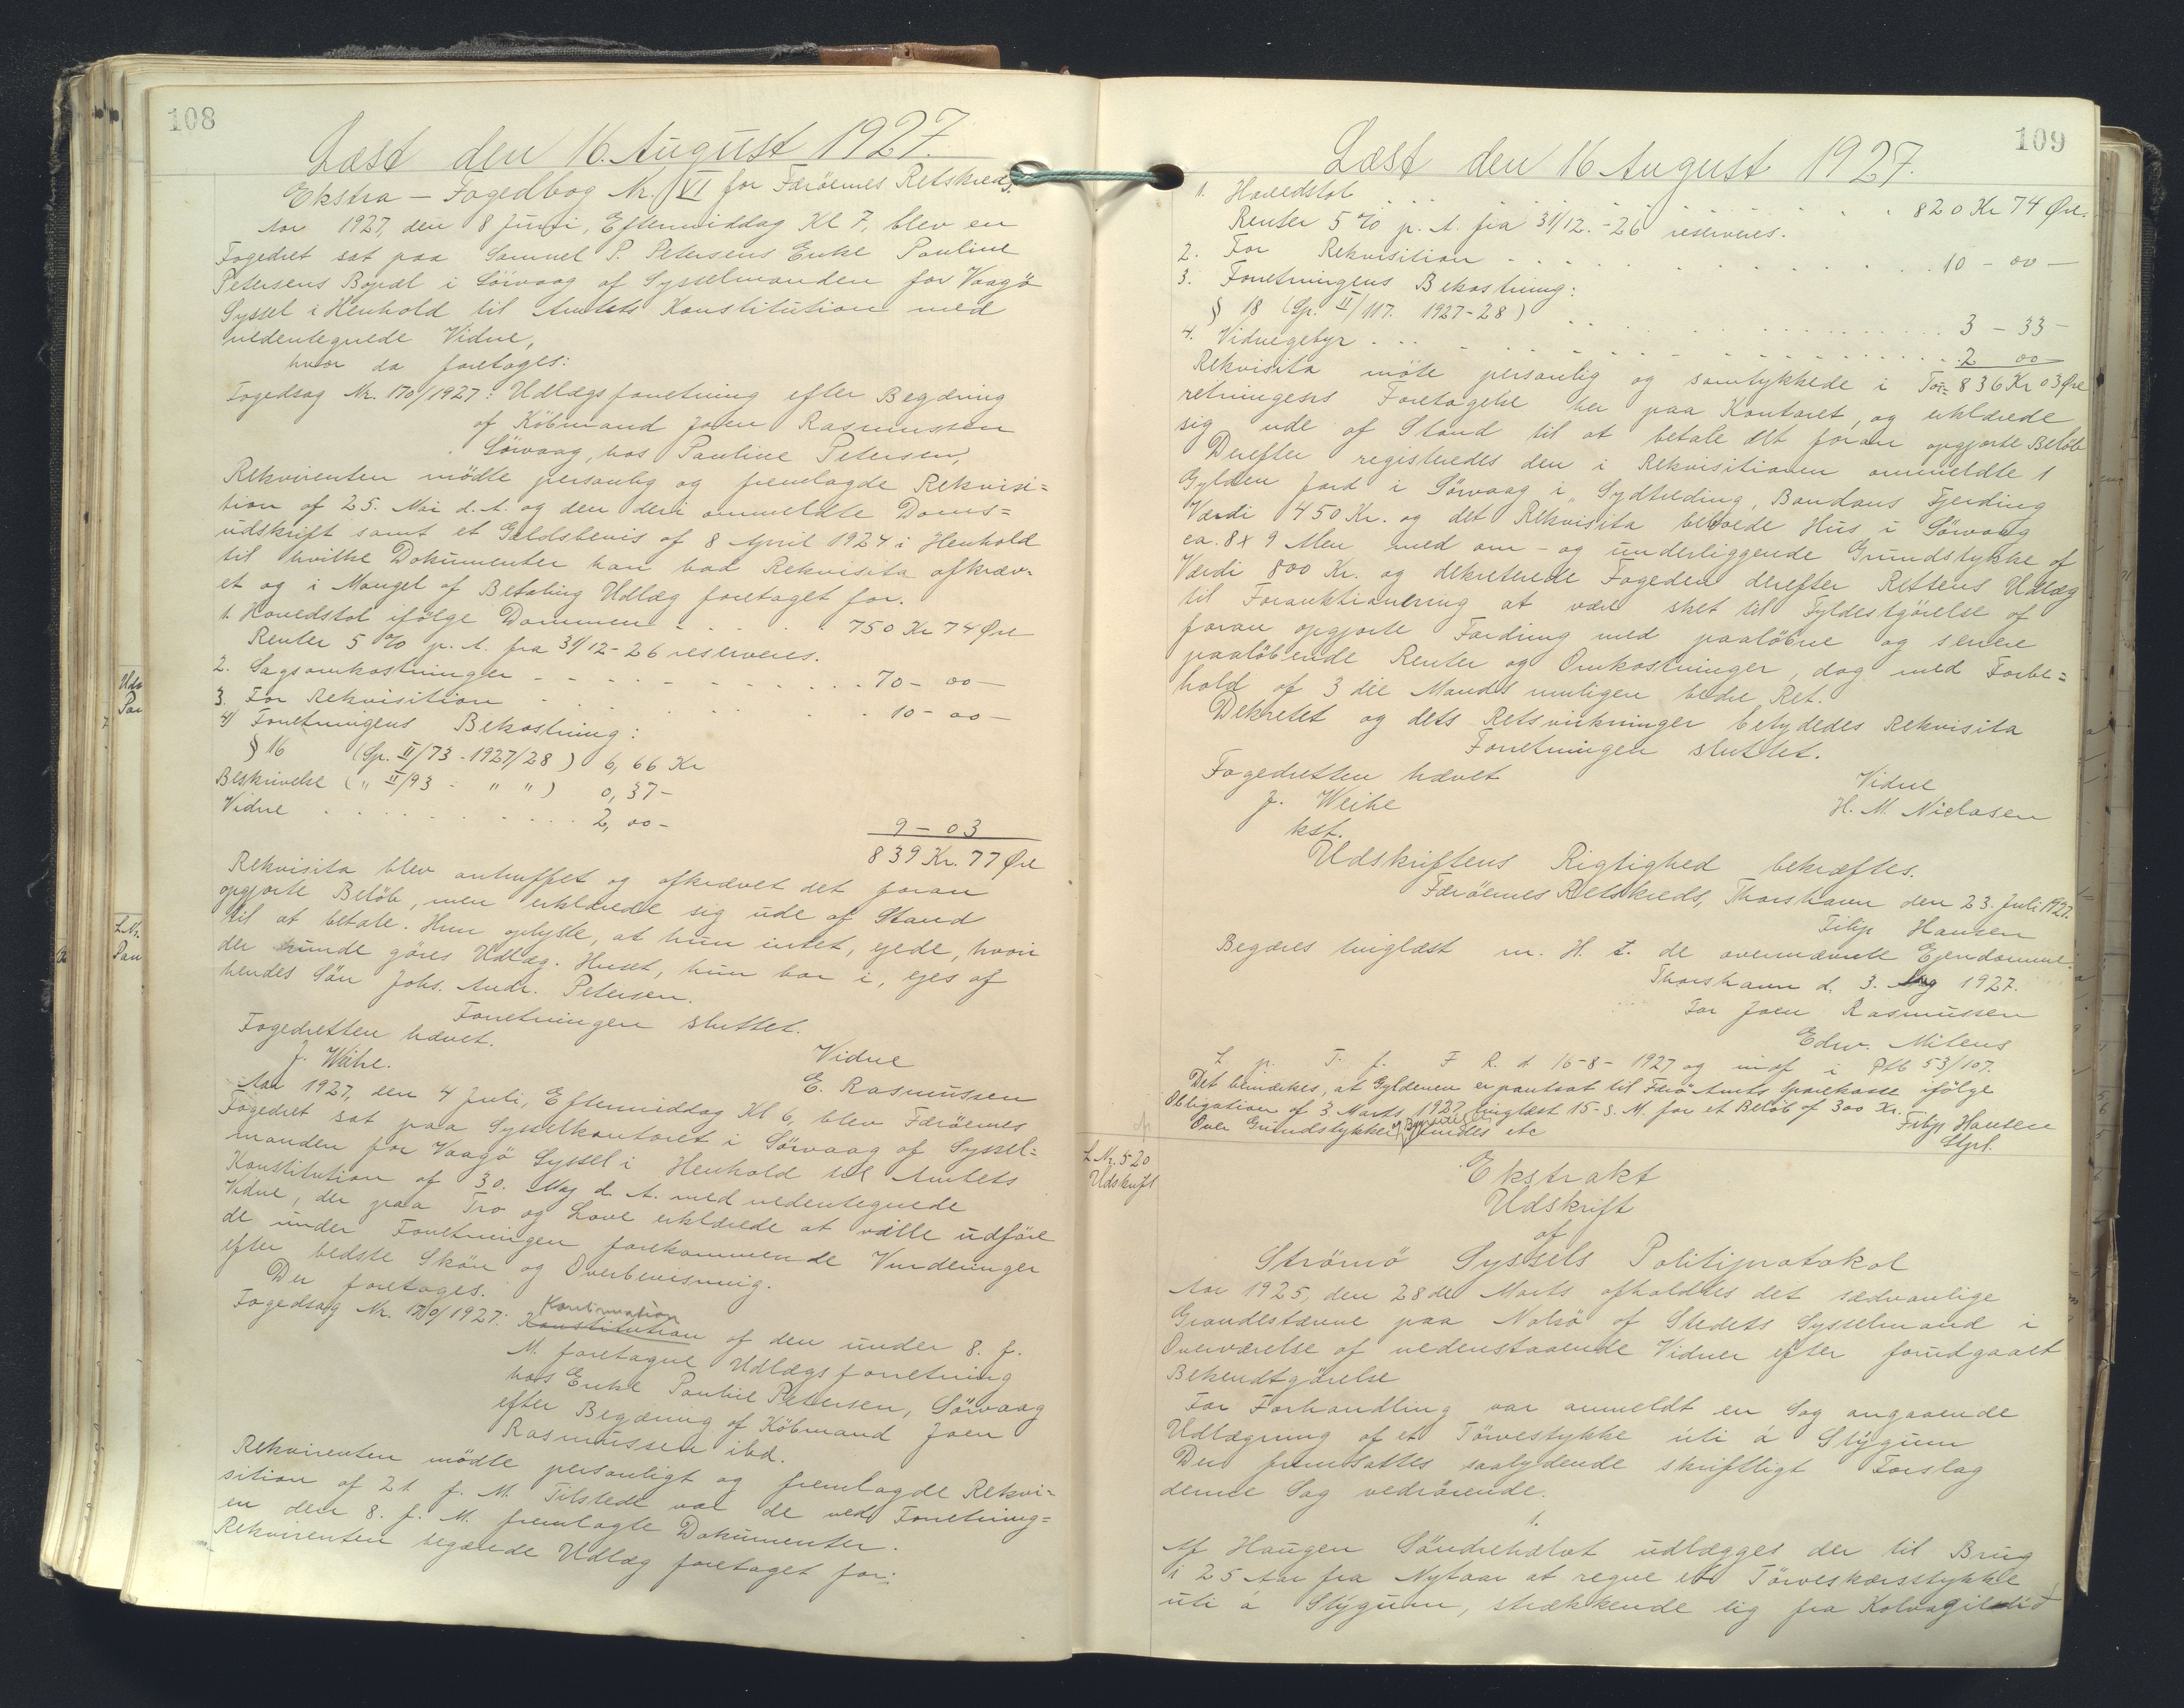 108
Læst den 16. August 1927.
Ekstra - Fogedbog Nr. VI for Færöernes Retskreds.
Aar 1927, den 8 Juni, Eftermiddag Kl 7, blev en
Fogedret sat paa Samuel P. Petersens Enke Pauline
Petersens Bopæl i Sörvaag af Sysselmanden for Vaagö
Syssel i Henhold til Amtets Konstitution med
nedentegnede Vidne,
hvor da foretages:
Fogedsag Nr. 170/1927: Udlægsforretning efter Begæring
af Köbmand Joen Rasmussen
Sörvaag, hos Pauline Petersen,
Rekvirenten mödte personlig og fremlagde Rekvisi=
tion af 25. Mai d. A. og den deri ommeldte Doms=
udskrift samt et Gældsbevis af 8 April 1924 i Henhold
til hvilke Dokumenter han bad Rekvisita afkræv-
et og i Mangel af Betaling Udlæg foretaget for.
1. Hovedstol ifölge Dommen - - - - - 750 Kr 74 Øre
Renter 5 % p. A. fra 31/12-26 reserveres.
2. Sagsomkostninger - - - - - - - - - - 70 - 00 -
3. For Rekvisition . . . . . . . . 10 - 00 -
4) Forretningens Bekostning:
§ 16 (Sp. II/73 - 1927/28) 6,66 Kr
Beskrivelse (" II/93 - " ") 0,37 -
Vidne . . . . . . . . . . . 2,00 -
9 - 03
839 Kr. 77 Øre
Rekvisita blev antruffet og afkrævet det foran
opgjorte Belöb, men erklærede sig ude af Stand
til at betale. Hun oplyste, at hun intet, ejede, hvori
der kunde göres Udlæg. Huset, hun bor i, ejes af
hendes Sön Johs. Andr. Petersen.
Forretningen sluttet.
Fogedretten hævet.
J. Weihe.
Vidne
E. Rasmussen
Aar 1927, den 4 Juli, Eftermiddag Kl 6, blev Færöernes
Fogedret sat paa Sysselkontoret i Sörvaag af Syssel=
manden for Vaagö Syssel i Henhold til Amtets
Konstitution af 30. Maj d. A. med nedentegnede
Vidne, der paa Tro og Love erklærede at ville udföre
de under Forretningen forekommende Vurderinger
efter bedste Skön og Overbevisning.
Der foretages.
Fogedsag Nr. 170/1927: Konstitution Kontinuation af den under 8. f.
M. foretagne Udlægsforretning
hos Enke Pauline Petersen, Sörvaag
efter Begæring af Köbmand Joen
Rasmussen ibd.
Rekvirenten mödte personligt og fremlagde Rekvi-
sition af 21 f. M. Tilstede var de ved Forretning=
en den 8. f. M. fremlagte Dokumenter.
Rekvirenten begærede Udlæg foretaget for:
109
Læst den 16 August 1927.
1. Hovedstol . . . . . . . . . . 820 Kr 74 Øre.
Renter 5 % p. A. fra 31/12.-26 reserveres.
2. For Rekvisition - - - - - - - - 10 - 00 -
3. Forretningens Bekostning:
§ 18 (Sp. II/117. 1927-28) . . . . . . . 3 - 33 -
4. Vidnegebyr - - - - - - - - - 2 00
836 Kr 03 Øre
Rekvisita möte personlig og samtykkede i For=
retningens Foretagelse her paa Kontoret, og erklærede
sig ude af Stand til at betale det foran opgjorte Belöb
Derefter registreredes den i Rekvisitionen ommeldte 1
Gylden Jord i Sörvaag i Sydtreding, Bondans Fjerding
Værdi 450 Kr. og det Rekvisita beboede Hus i Sörvaag
ca. 8 x 9 Alen med om- og underliggende Grundstykke af
Værdi 800 Kr. og dekreterede Fogeden derefter Rettens Udlæg
til Forauktionering at være sket til Fyldestgörelse af
foran opgjorte Fordring med paalöbne og senere
paalöbende Renter og Omkostninger, dog med Forbe=
hold af 3 die Mands muligen bedre Ret.
Dekretet og dets Retsvirkninger betydedes Rekvisita
Forretningen sluttet.
Fogedretten hævet
J. Weihe
kst.
Vidne
H. M. Niclasen
Udskriftens Rigtighed bekræftes.
Færöernes Retskreds, Thorshavn den 23. Juli 1927.
Filip Hansen
Begæres tinglæst m. H. t. de ovennævnte Ejendomme.
Thorshavn d. 3. Aug 1927.
For Joen Rasmussen
Edw. Mitens
L. p. T. f. F R. d 16-8-1927 og indf i Ptb 53/107.
Det bemærkes, at Gyldenen er pantsat til Færö Amts Sparekasse ifölge
Obligation af 3 Marts 1927, tinglæst 15. s. M. for et Belöb af 300 Kr.
Over Grundstykket og Bygningen findes etc
Filip Hansen
Stpl.
L Nr. 520
Udskrift
Ekstrakt
Udskrift
af
Strömö Syssels Politiprotokol
Aar 1925, den 28de Marts afholdtes det sædvanlige
Grandestævne paa Nolsö af Stedets Sysselmand i
Overværelse af nedenstaaende Vidner efter forudgaaet
Bekendtgörelse
For Forhandling var anmeldt en Sag angaaende
Udlægning af et Törvestykke úti á Stýgum
Der fremsattes saalydende skriftligt Forslag
denne Sag vedrörende.
1.
Af Haugen Söndrehalvt udlægges der til Brug
i 25 Aar fra Nytaar at regne et Törveskærsstykke
úti á Stýgum, strækkende sig fra